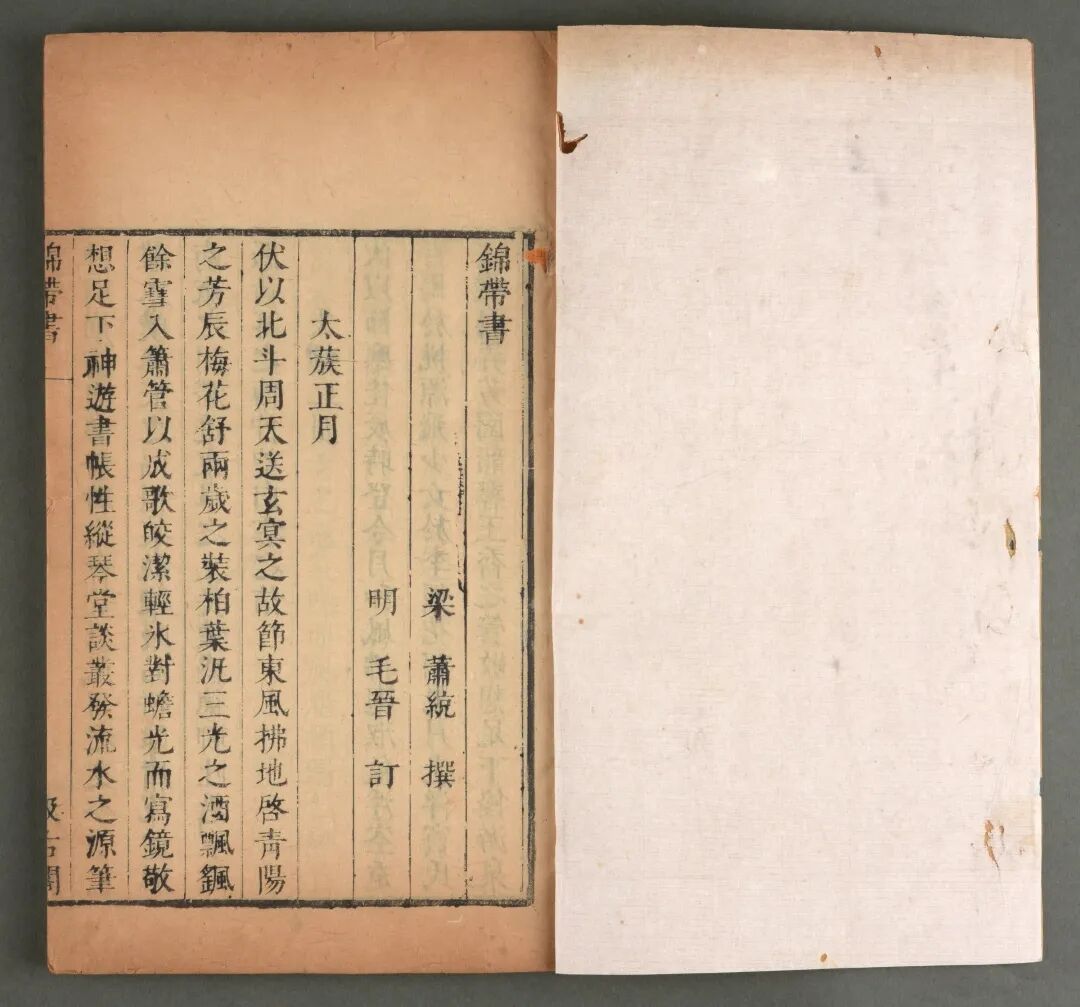 錦帶書
梁 蕭統 撰
明 毛晉 訂
太蔟正月
伏以北斗周天送玄冥之故節東風拂地啓青陽
之芳辰梅花舒兩歲之裝柏葉汎三光之酒飄颻
餘雪入簫管以成歌皎潔輕氷對蟾光而寫鏡敬
想足下神遊書帳性縱琴堂談叢發流水之源筆
錦帶書 一
汲古閣